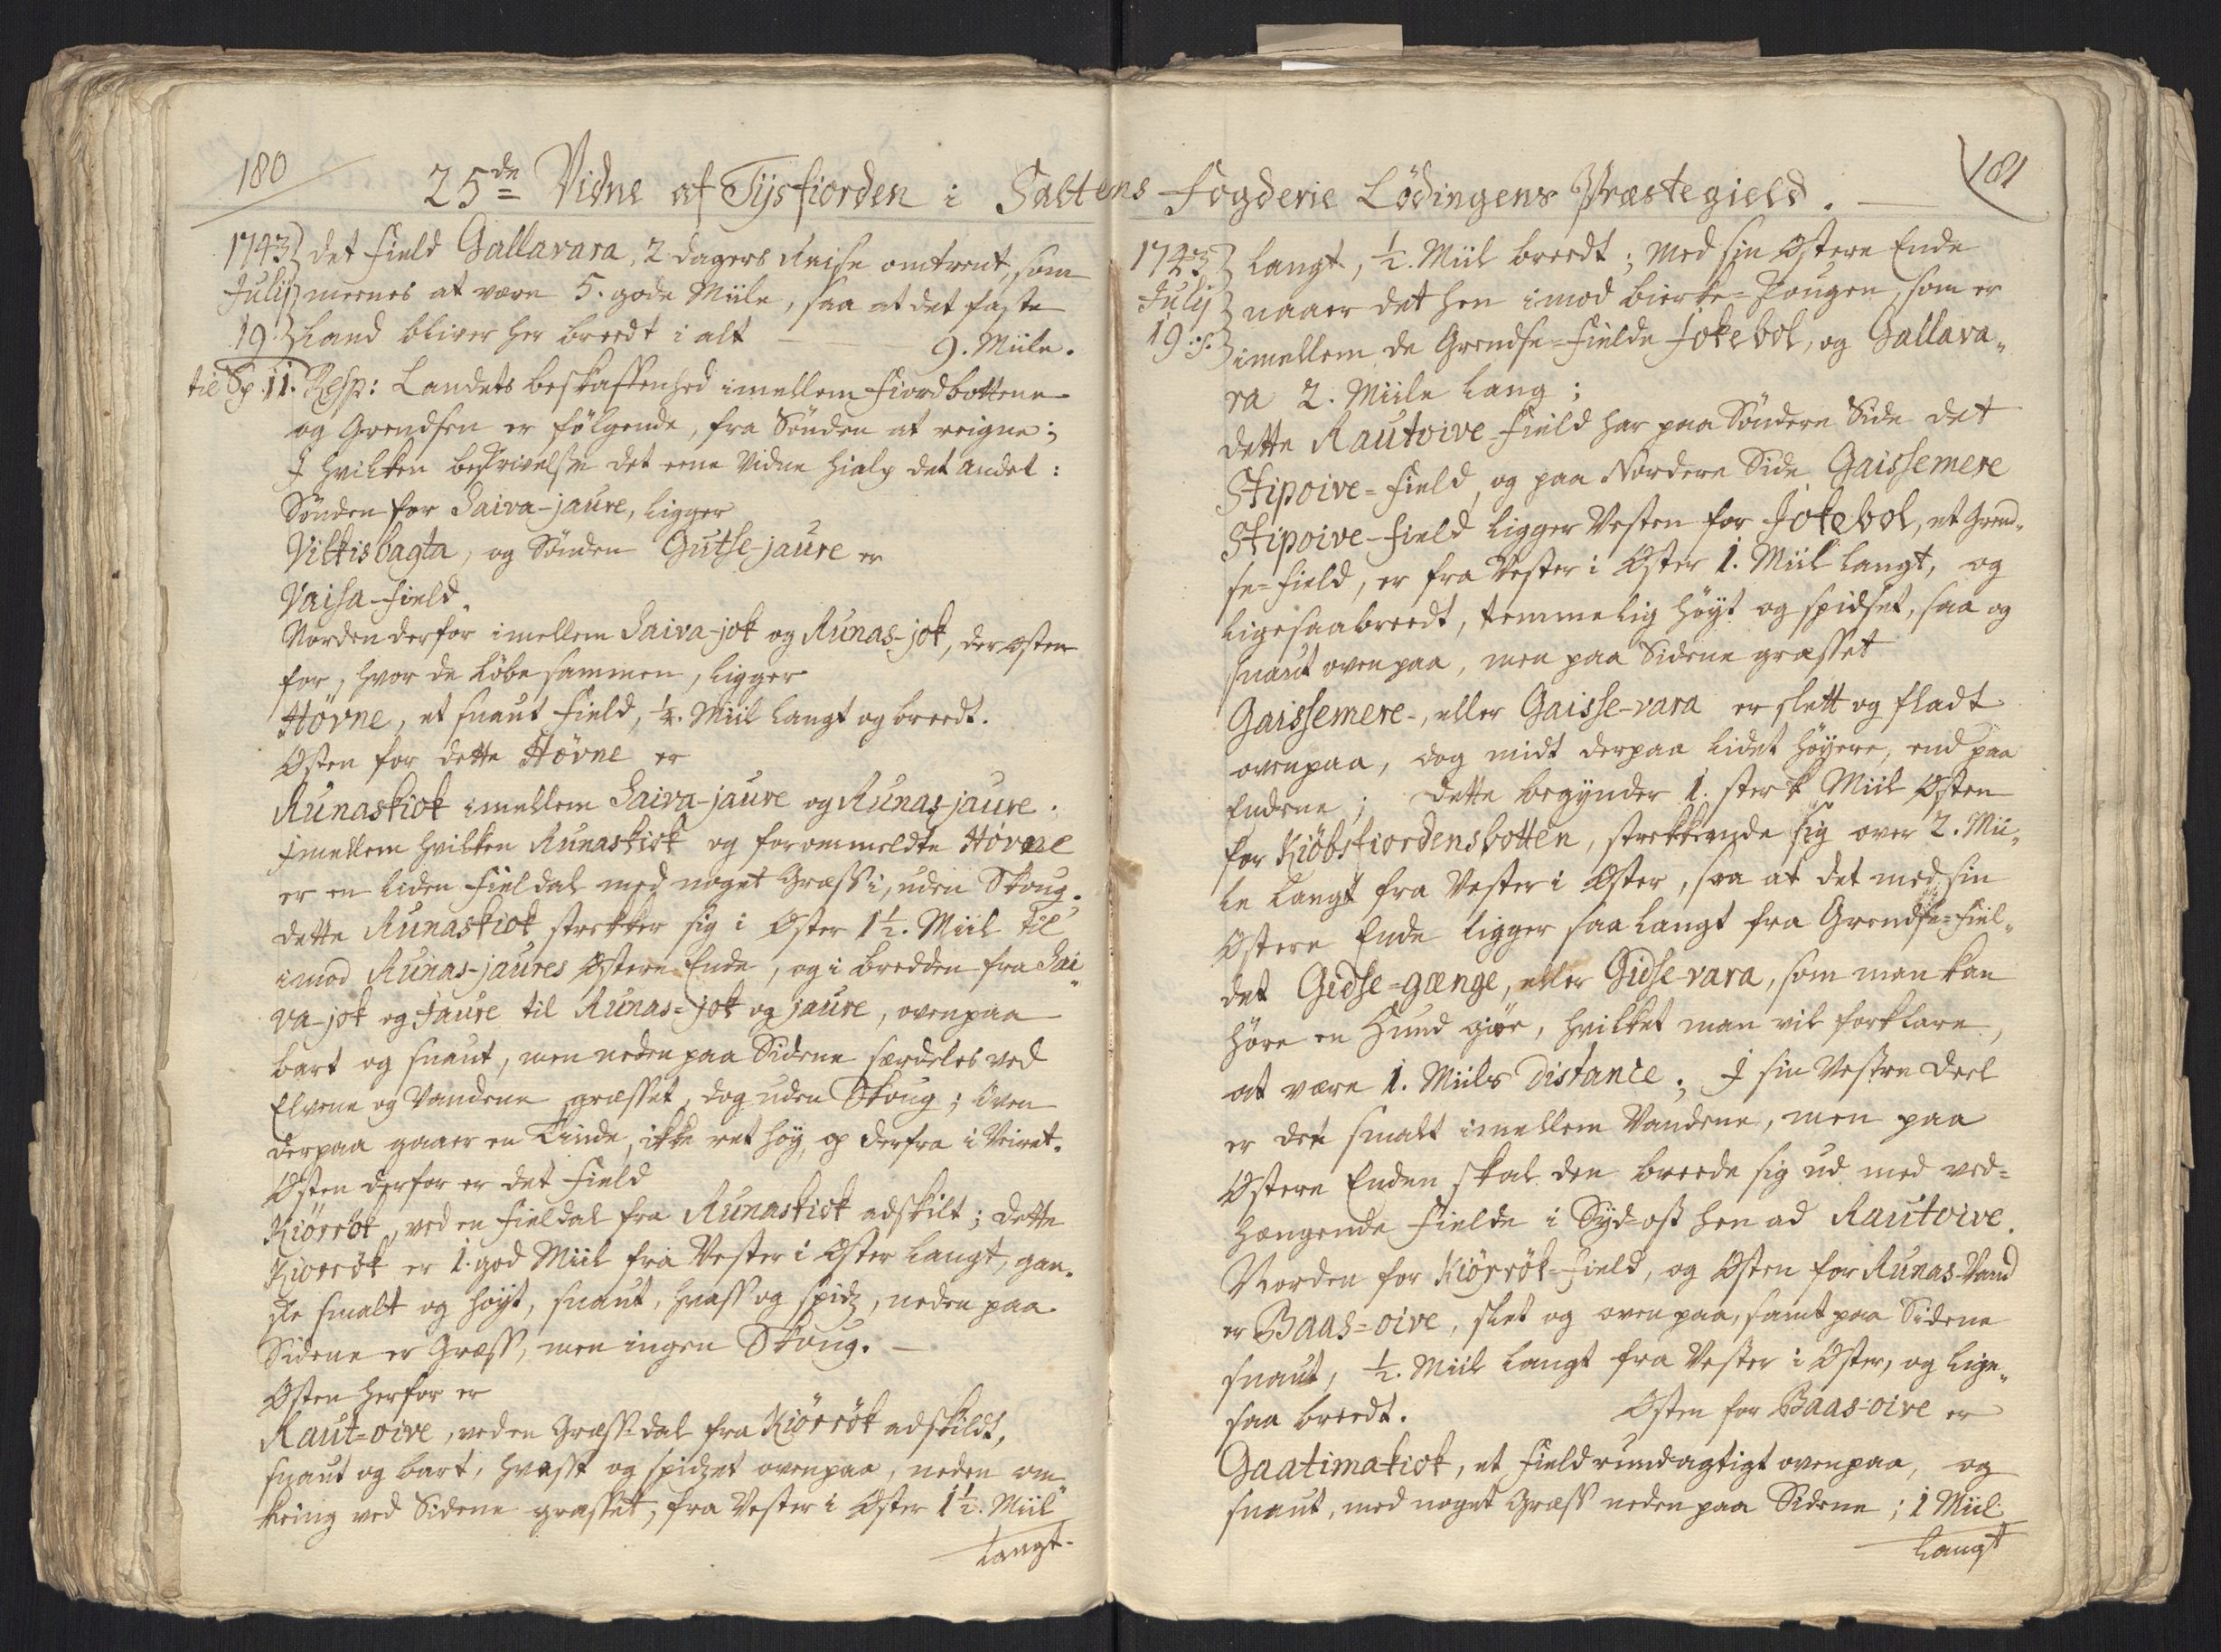 180
25de Vidne af Tijsfiorden i Saltens Fogderie Lödingens Præstegield.
181
1743 det Field Gallavara, 2 dagers Reise omtrent, som
Julij meenes at være 5. gode Miile, saa at det faste
19. Land bliver her breedt i alt — 9. Miile.
til Sp. 11. Resp: Landets beskaffenhed imellem Fiordbottene
og Grendsen er fölgende, fra Sönden at reigne;
I hvilken beskrivelse det eene Vidne hialp det andet:
Sönden for Saiva-jaure, ligger
Vilkisbagta, og Sönden Gutse-jaure er
Vaisa-Field.
Norden derfor imellem Saiva-jok og Runas-jok, der østen
for, hvor de löbe sammen, ligger
Hövne, et snaut Field, ¼. Miil langt og breedt.
Østen for dette Hövne er
Runaskiok imellem Saiva-jaure og Runas-jaure.
Imellem hvilken Runaskiok og forommeldte Hövne
er en liden Fieldal med noget Græss i, uden Skoug.
dette Runaskiok strekker sig i Øster 1½. Miil til
imod Runas-jaures Østere Ende, og i bredden fra Sai„
va-jok og Jaure til Runas=jok og jaure, ovenpaa
bart og snaut, men neden paa Siderne særdeles ved
Elvene og Vandene græsset, dog uden Skoug; Oven
derpaa gaaer en Tinde, ikke ret höy, op derfra i Veiret.
Østen derfor er det Field
Kiörrök, ved en Fieldal fra Runaskiok adskilt; dette
Kiorrök er 1. god Miil fra Vester i Øster langt, gan„
ske smalt og höyt, snaut, hvass og spidz, neden paa
Siderne er Græss, men ingen Skoug. —
Østen herfor er
Raut=oive, ved en Græss-dal fra Kiörrök adskildt,
snaut og bart, hvasst og spidzet ovenpaa, neden om„
kring ved Siderne græsset, fra Vester i Øster 1½. Miil
langt.
1743 langt, ½. Miil breedt; Med sin Østere Ende
Julij naaer det hen imod bierke=Skougen, som er
19. s. imellem de Grendse=Fielde Jokebol, og Gallava„
ra 2. Miile lang;
dette Rautoive-Field har paa Söndere Side det
Stipoive=Field, og paa Nordere Side Gaissemere
Stipoive-Field ligger Vesten for Jokebol, et Grend„
se=Field, er fra Vester i Øster 1. Miil langt, og
ligesaa breedt, temmelig höyt og spidset, saa og
snaut ovenpaa, men paa Siderne græsset
Gaissemere-, eller Gaisse-vara er slett og fladt
ovenpaa, dog midt derpaa lidet höyere, end paa
Enderne; dette begynder 1. sterk Miil Østen
for Kiöbsfiordensbotten, strekkende sig over 2. Mii„
le langt fra Vester i Øster, saa at det med sin
Østere Ende ligger saa langt fra Grendse=Fiel„
det Gidse=gænge, eller Gidse-vara, som man kan
höre en Hund giöe, hvilket man vil forklare,
at være 1. Miils Distance; I sin Vestre deel
er det smalt imellem Vandene, men paa
Østere Enden skal den breede sig ud med ved=
hængende Fielde i Syd=ost hen ad Rautoive.
Norden for Kiörrök-Field, og Østen for Runas-Vand
er Baas=oive, slet og ovenpaa, samt paa Siderne
snaut, ½. Miil langt fra Vester i Øster, og lige„
saa breedt. Østen for Baas-oive er
Gaatimakiok, et Field rundagtigt ovenpaa, og
snaut, med noget Græss neden paa Siderne; 1 Miil
langt